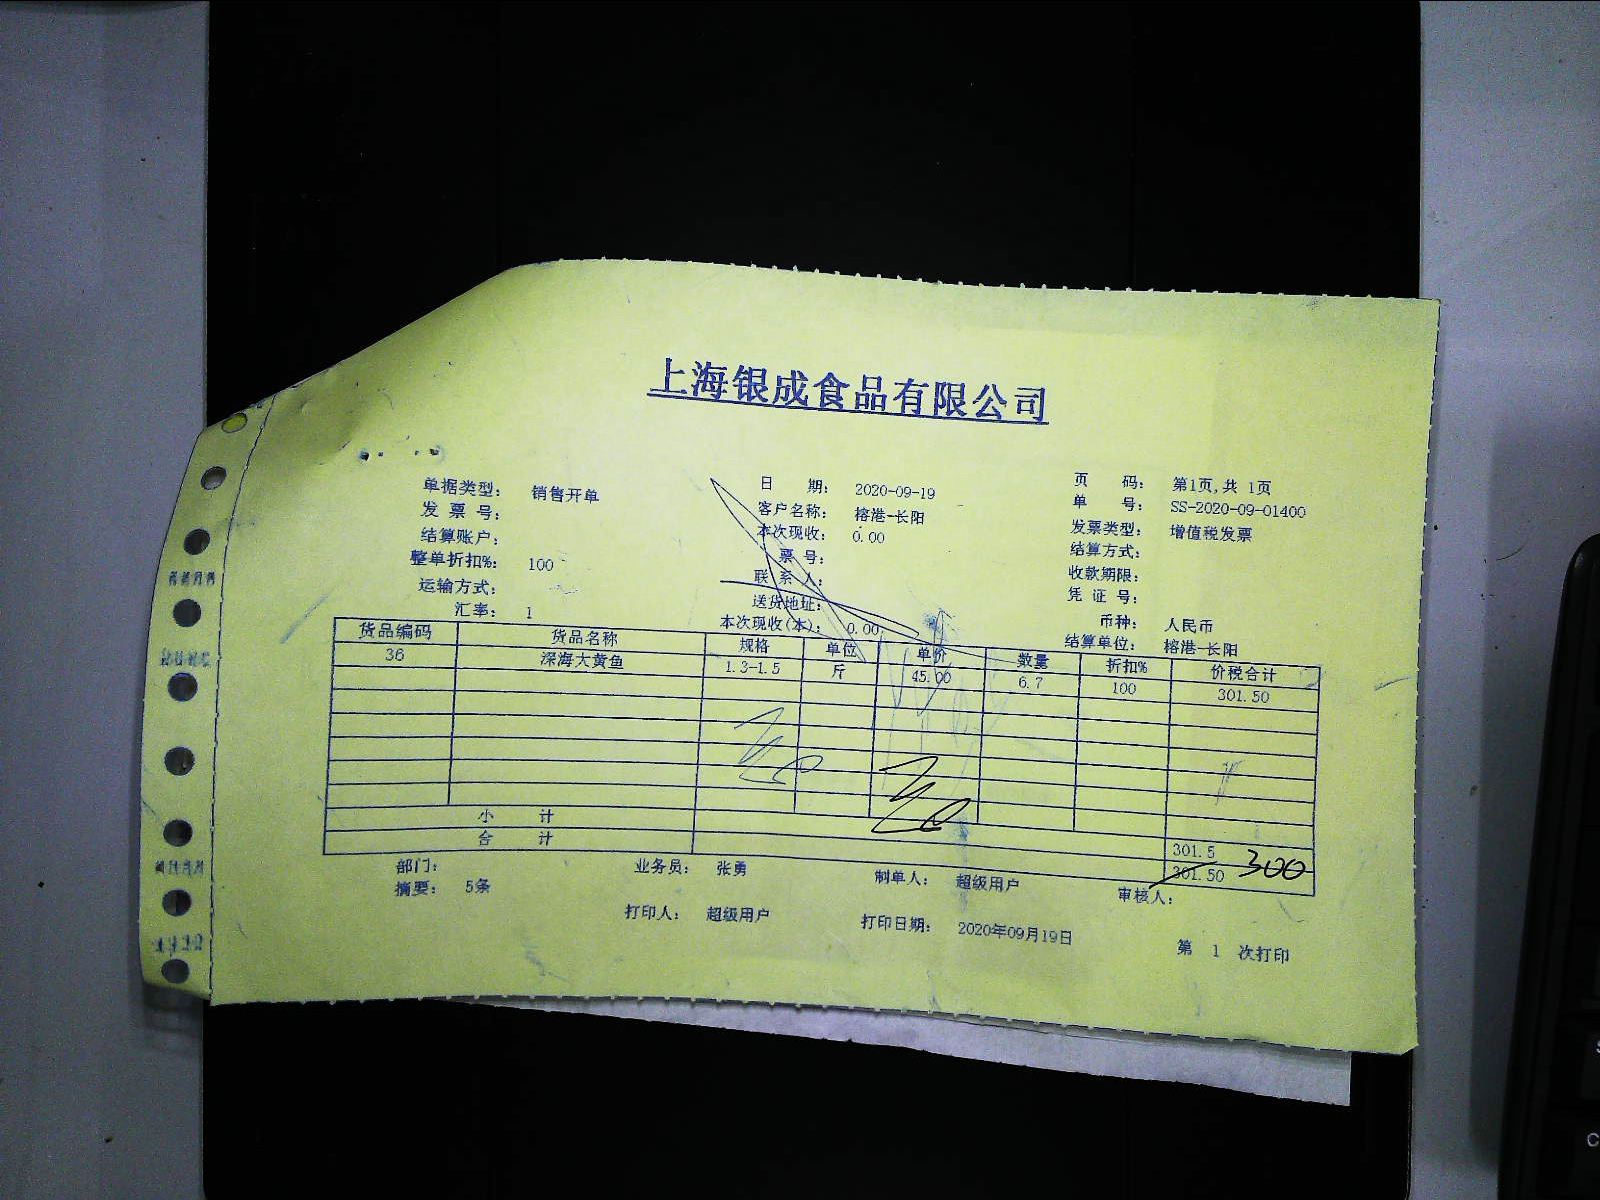 上海银成食品有限公司
单据类型： 销售开单 日 期： 2020-09-19 页 码： 第1页,共 1页
发 票 号： 客户名称： 榕港-长阳 单 号： SS-2020-09-01400
结算账户： 本次现收： 0.00 发票类型： 增值税发票
整单折扣%： 100 票 号： 结算方式：
运输方式： 联 系 人： 收款期限：
汇率： 1 送货地址： 凭 证 号：
本次现收(本)： 0.00 币种： 人民币
结算单位： 榕港-长阳
货品编码 货品名称 规格 单位 单价 数量 折扣% 价税合计
36 深海大黄鱼 1.3-1.5 斤 45.00 6.7 100 301.50
小 计 301.5
合 计 301.50 300
部门： 业务员： 张勇 制单人： 超级用户 审核人：
摘要： 5条
打印人： 超级用户 打印日期： 2020年09月19日 第 1 次打印